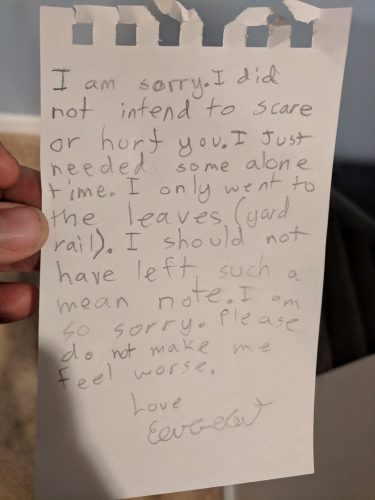 I am sorry. I did
not intend to scare
or hurt you. I Just
needed some alone
time. I only went to
the leaves (gard
rail). I should not
have left such a
mean note. I am
so sorry. Please
do not make me
feel worse.
Love